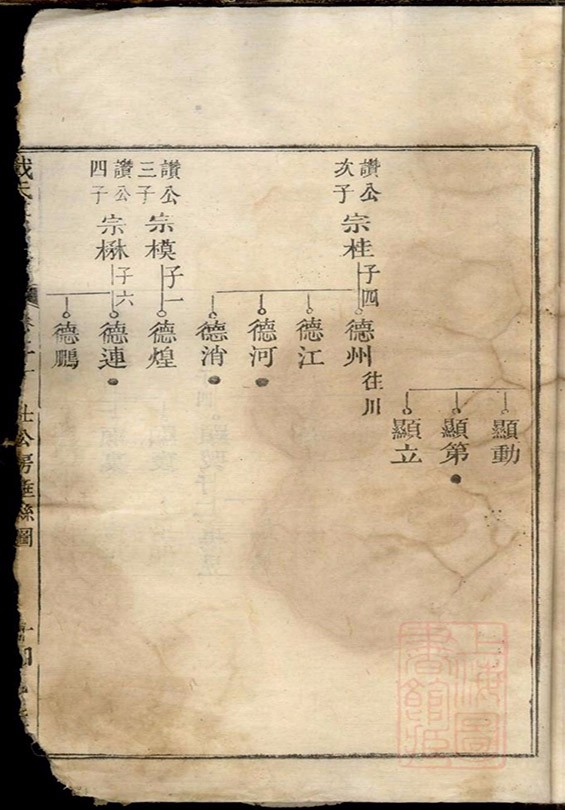 顯動
顯第
顯立
讚公
次子
宗桂
子四
德州
往川
德江
德河
德消
讚公
三子
宗模
子一
德煌
讚公
四子
宗楙
子六
德連
德鵬
仕公房垂絲圖
上海圖
書館藏